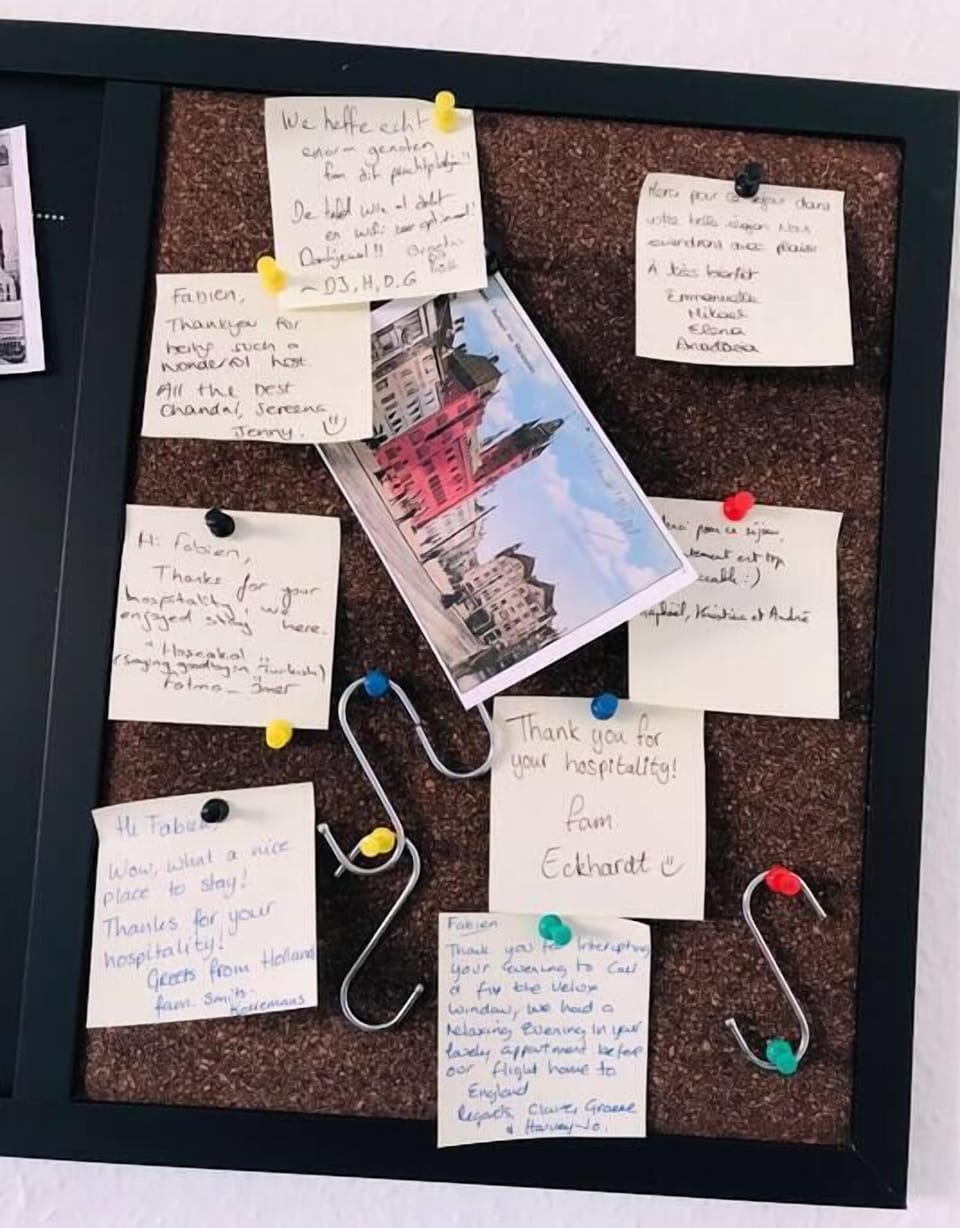 We heffe echt
enorm genoten
fan dit prachtplekje!!
De tafel was al dekt
en wifi zeer optimaal!
Dankjewel!!
~ DJ, H, D, G
Fabien,
Thankyou for
being such a
wonderful host.
All the best
Chandal, Sereena,
Jenny.
Merci pour ce séjour dans
votre belle région Nous
reviendrons avec plaisir
À très bientôt
Emmanuelle
Mikael
Elena
Anastasia
Hi Fabien,
Thanks for your
hospitality, we
enjoyed stay here.
Hoscakal
(saying goodbye in Turkish)
Fatma
pour ce séjour,
est top
:)
Raphaël, et André
Thank you for
your hospitality!
fam.
Eckhardt
Hi Fabien,
Wow, what a nice
place to stay!
Thanks for your
hospitality!
Greets from Holland
fam. Smits-
Korremans
Fabien
Thank you for Interupting
your evening to Call
& fix the velux
window, we had a
relaxing evening in your
lovely appartment before
our flight home to
England
Regards, Claire, Graeme
& Harvey-Jo.